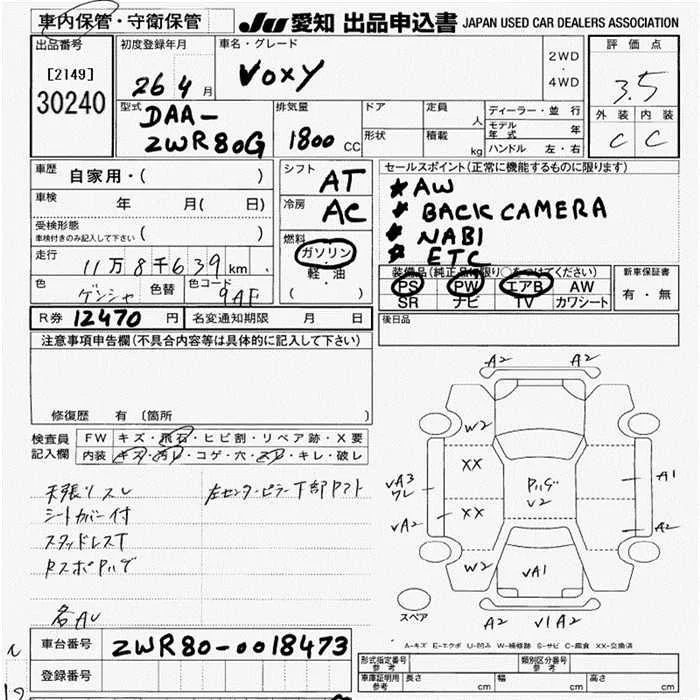 車内保管・守衛保管
JU 愛知 出品申込書 JAPAN USED CAR DEALERS ASSOCIATION
出品番号
[2149]
30240
初度登録年月
26 4 月
車名・グレード
VOXY
2WD
・
4WD
評価点
3.5
外装 内装
C C
型式
DAA-
ZWR80G
排気量
1800 CC
ドア
定員
人
形状
積載
kg
ディーラー・並行
モデル年式 年
ハンドル 左・右
車歴
自家用・( )
車検 年 月( 日)
受検形態
車検付きのみ記入して下さい ( )
走行
11万8千639 km
色
ゲンシャ
色替
色コード
9AF
シフト
AT
冷房
AC
燃料
ガソリン
・
軽・油
( )
セールスポイント(正常に機能するものに限ります)
★AW
★BACK CAMERA
★NABI
★ETC
装備品(純正品に限り○をつけてください)
PS PW エアB AW
SR ナビ TV カワシート
新車保証書
有・無
R券 12470 円
名変通知期限 月 日
後日品
注意事項申告欄(不具合内容等は具体的に記入して下さい)
修復歴 有 (箇所 )
検査員
記入欄
FW キズ・飛石・ヒビ割・リペア跡・X要
内装 キズ・汚レ・コゲ・穴・スレ・キレ・破レ
天張リスレ
シートカバー付
スタッドレスT
左センターピラー下部ヤケト
各AU
A2 A2
W2
XX
UA3
ワレ
XX
UA2
W2
A1
A2
U2
UA1
スペア
A2 U1A2
A-キズ E-エクボ U-凹み W-補修跡 S-サビ C-腐食 XX-交換済
車台番号
ZWR80-0018473
登録番号
形式指定番号
参考
類別区分番号
参考
車庫証明用
参考
長さ cm
幅 cm
高さ cm